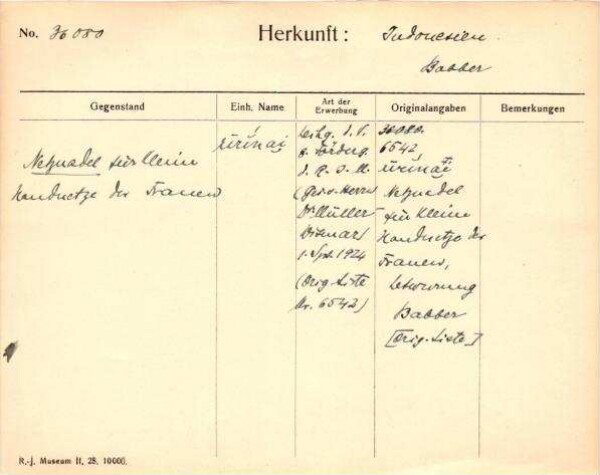 No. 36080 Herkunft: Indonesien
Babber
Gegenstand Einh. Name Art der Erwerbung Originalangaben Bemerkungen
Netznadel für kleine
Handnetze der Frauen
ūrinai
d. V.
z. Förderg.
d. R. J. M.
(Gesch. Herrn
Dr. Müller
Wismar)
1. Sept. 1924
(Orig. Liste
Nr. 6542)
36080.
6542
ūrinai
Netznadel
für kleine
Handnetze der
Frauen,
Babber
[Orig. Liste]
R.-j. Museum II, 25. 10000.